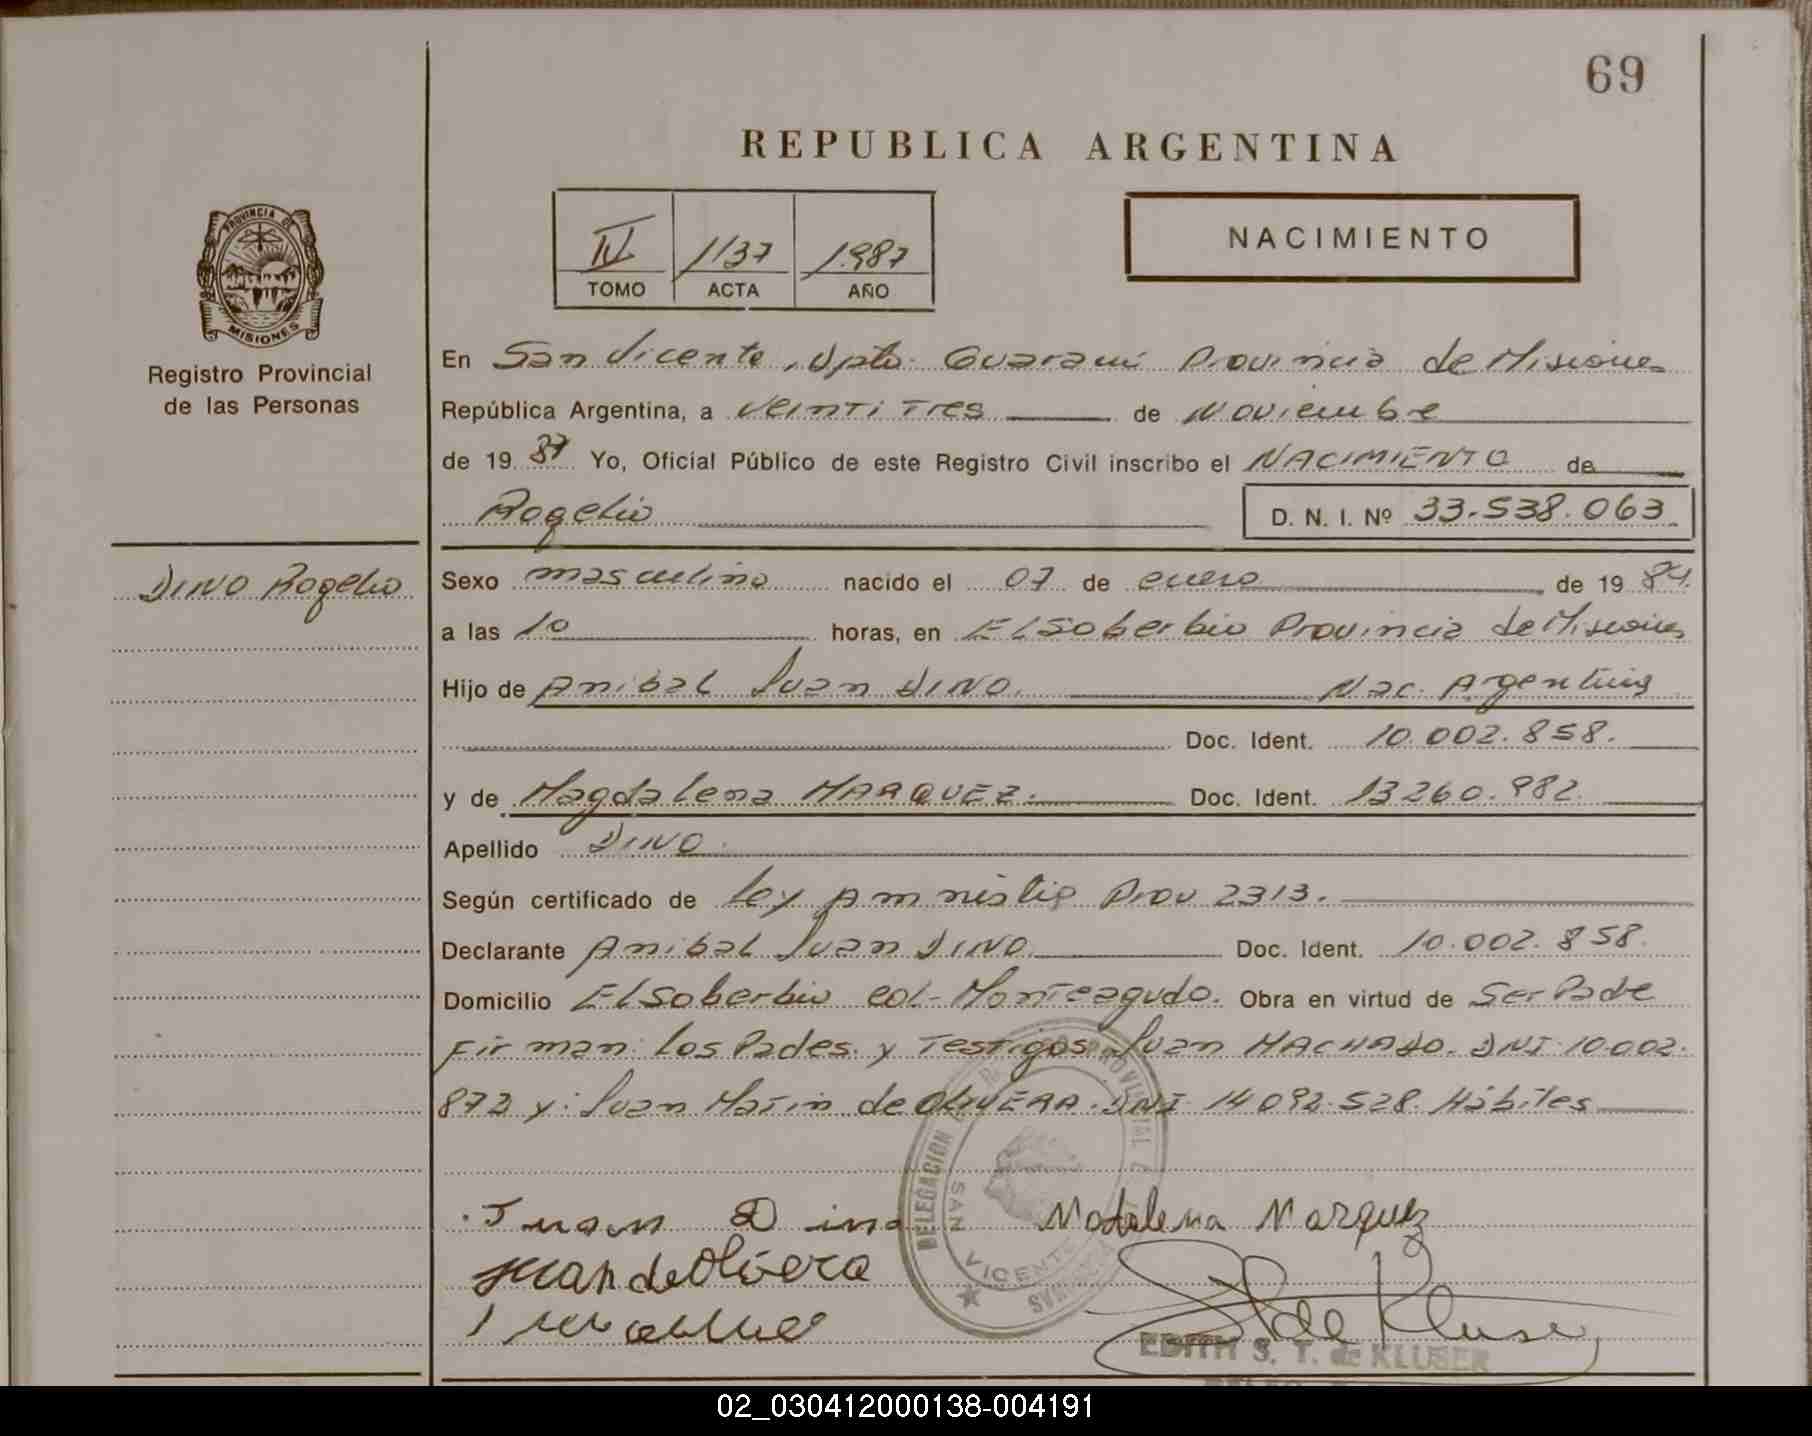 69
REPUBLICA ARGENTINA
PROVINCIA DE
MISIONES
Registro Provincial
de las Personas
IV 1137 1987
TOMO ACTA AÑO
NACIMIENTO
En San Vicente, Dpto. Guarani Provincia de Misiones
República Argentina, a Veinti Tres de Noviembre
de 19 87 Yo, Oficial Público de este Registro Civil inscribo el NACIMIENTO de
Rogelio D. N. I. Nº 33.538.063
DINO Rogelio
Sexo masculino nacido el 07 de enero de 19 84.
a las 10 horas, en El Soberbio Provincia de Misiones
Hijo de Anibal Juan DINO. Nac. Argentina
Doc. Ident. 10.002.858.
y de Magdalena MARQUEZ. Doc. Ident. 13260.982.
Apellido DINO.
Según certificado de Ley Amnistia Prov 2313.
Declarante Anibal Juan DINO Doc. Ident. 10.002.858.
Domicilio El Soberbio Col- Monteagudo. Obra en virtud de Ser Pade
Firman: los Pades. y Testigos Juan MACHADO. DNI 10.002.
872 y: Juan Marin de OLIVERA. DNI 14 092.528. Hábiles
DELEGACION PROVINCIAL
SAN VICENTE
Juan Dino Madalena Marquez
Juan de Olivera
de Kluse
EDITH S. T. de KLUSER
02_030412000138-004191